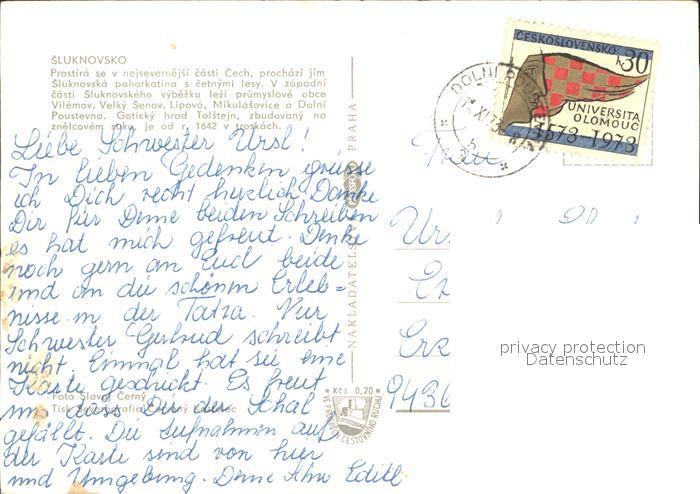 ŠLUKNOVSKO
Prostírá se v nejsevernější části Čech, prochází jím
Šluknovská pahorkatina s četnými lesy. V západní
části Šluknovského výběžku leží průmyslové obce
Vilémov, Velký Šenov, Lipová, Mikulášovice a Dolní
Poustevna. Gotický hrad Tolštejn, zbudovaný na
znělcovém suku, je od r. 1642 v troskách.
Liebe Schwester Ursl!
In lieben Gedenken grüsse
ich Dich recht herzlich. Danke
Dir für Deine beiden Schreiben
es hat mich gefreut. Denke
noch gern an Euch beide
und an die schönen Erleb=
nisse in der Tatra. Nur
Schwester Gertrud schreibt
nicht. Einmal hat sie eine
Karte geschickt. Es freut
uns dass Dir der Schal
gefällt. Die Aufnahmen auf
der Karte sind von hier
und Umgebung. Deine Edith
Foto Slavoj Černý
Tisk Severografia, Červený Kostelec
NAKLADATELSTVÍ PRAHA
Kčs 0,20
VE PROSPĚCH CESTOVNÍHO RUCHU
ČESKOSLOVENSKO
h 30
UNIVERSITA
OLOMOUC
1573-1973
DOLNÍ
XI.73
Ur
Erz
9436
privacy protection
Datenschutz